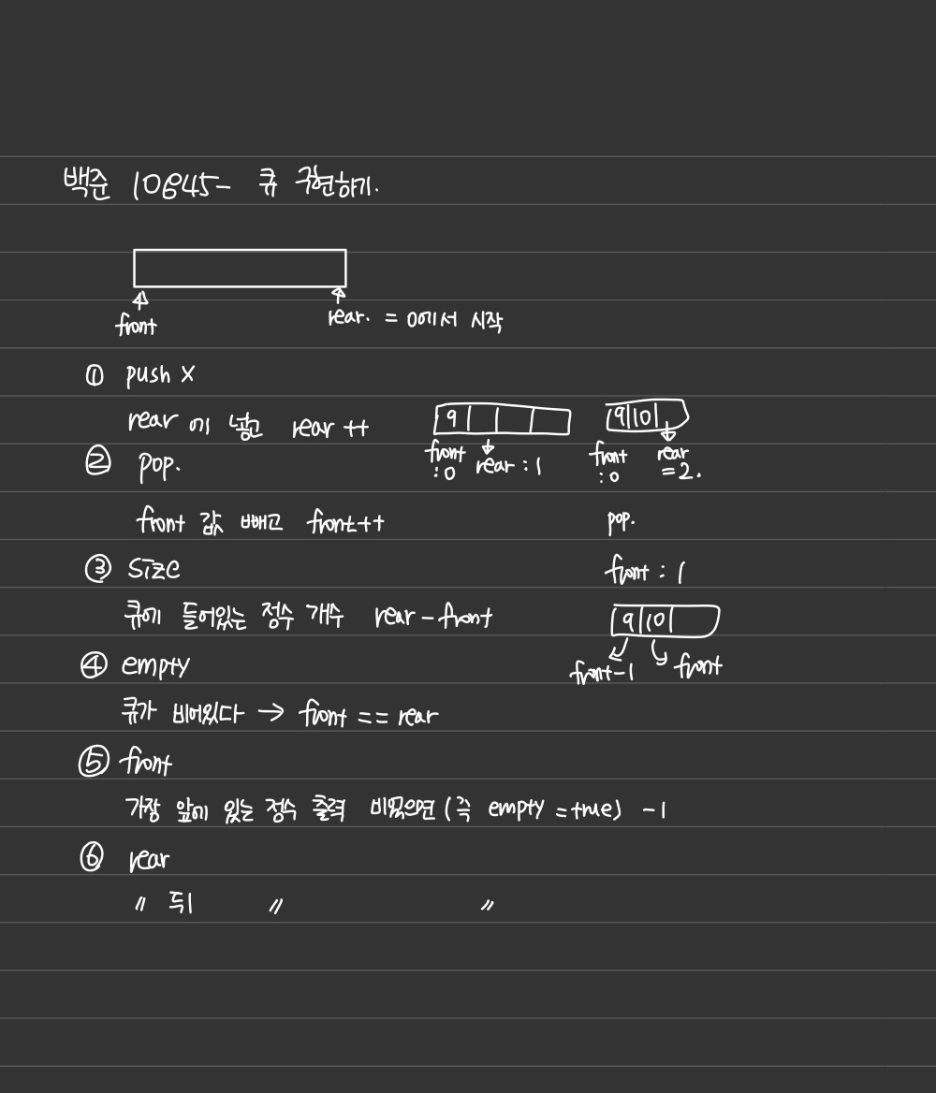 백준 10845- 큐 구현하기.
front
rear. = 0에서 시작
① push X
rear에 넣고 rear ++
9
front :0
rear : 1
9 10
front :0
rear =2.
② pop.
front 값 빼고 front++
pop.
front : 1
③ size
큐에 들어있는 정수 개수 rear - front
9 10
front-1 front
④ empty
큐가 비어있다 → front == rear
⑤ front
가장 앞에 있는 정수 출력 비었으면 (즉 empty = true) -1
⑥ rear
〃 뒤 〃 〃